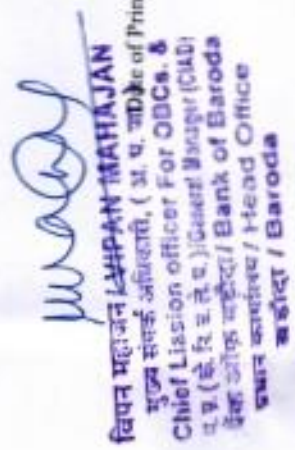 विपन महाजन / VIPAN MAHAJAN
मुख्य संपर्क अधिकारी, ( अ. प. व
Date of Prin
Chief Liasion officer For OBCs. &
General Manager (CIAD)
बैंक ऑफ बड़ौदा / Bank of Baroda
प्रधान कार्यालय / Head Office
बड़ौदा / Baroda